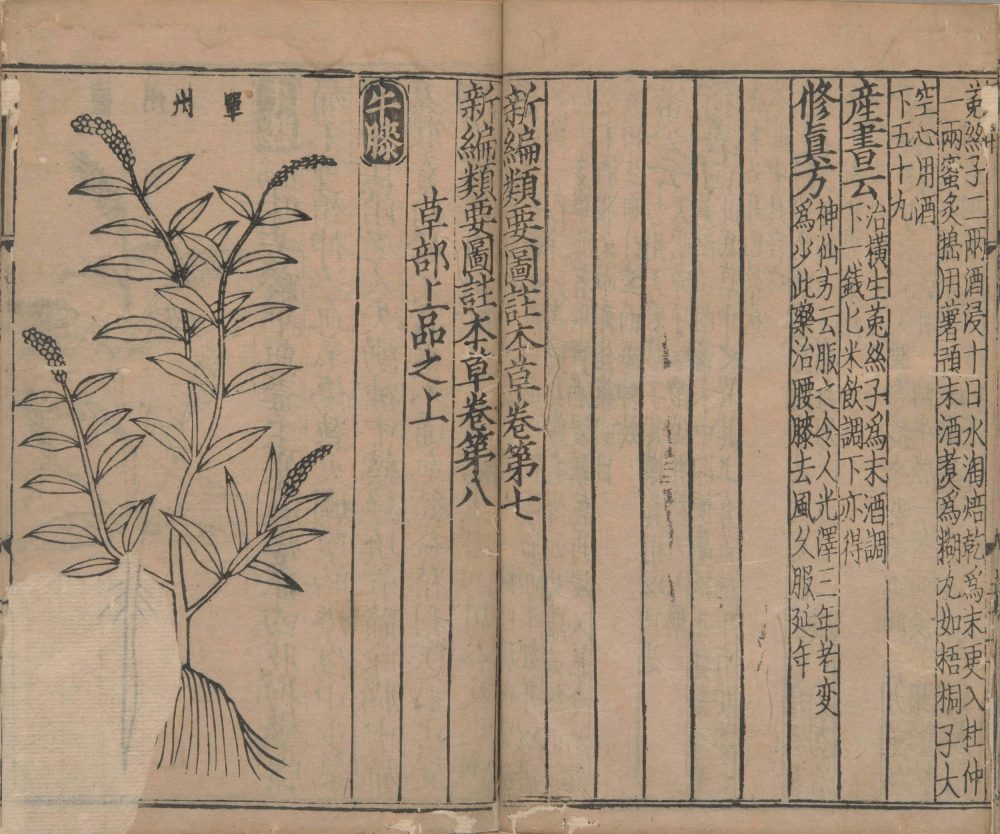 菟絲子二兩酒浸十日水淘焙乾爲末更入杜仲
一兩蜜炙搗用薯蕷末酒煮爲糊丸如梧桐子大
空心用酒
下五十九
産書云治橫生菟絲子爲末酒調
下一錢匕米飲調下亦得
修真方神仙方云服之令人光澤三年老变
爲少此藥治腰膝去風久服延年
新編類要圖註本草卷第七
新編類要圖註本草卷第八
草部上品之上
牛膝
單州